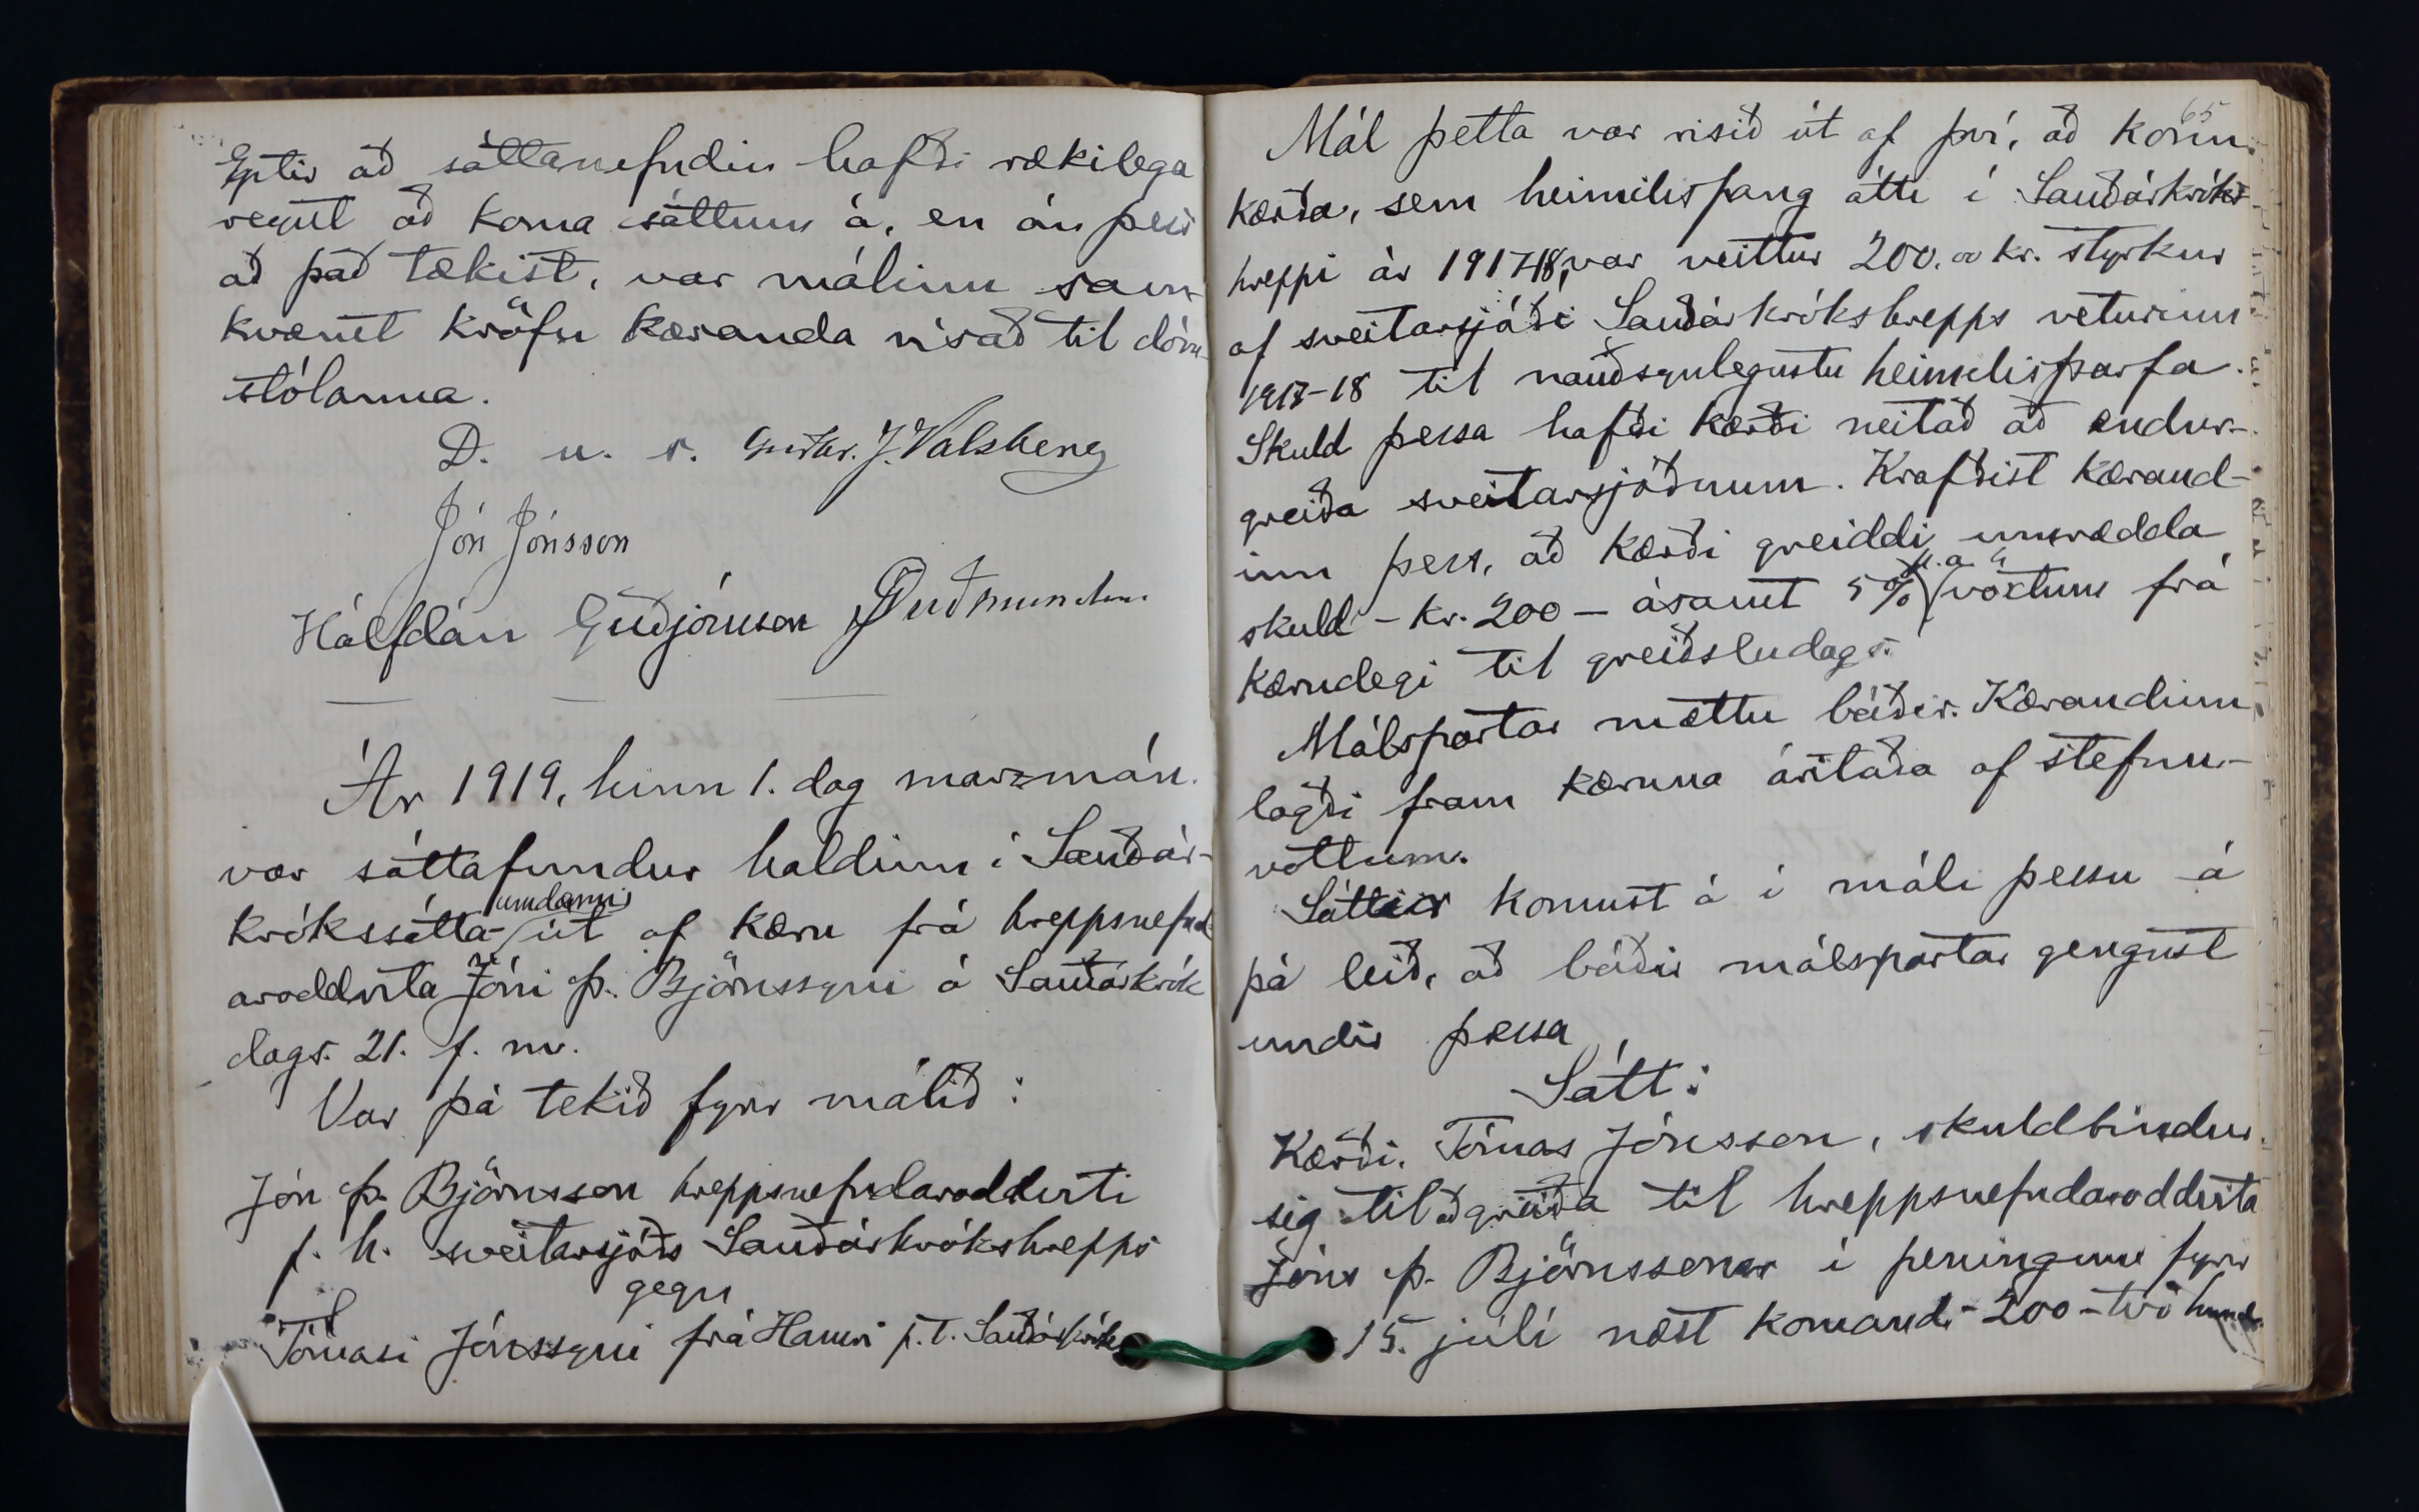 Eptir að sáttanefndin hafði rækilega
reynt að koma sáttum á, en án þess
að það tækist, var málinu sam-
kvæmt kröfu kæranda vísað til dóm-
stólanna.
D. u. s. J. Valsberg
Jón Jónsson
Hálfdán Guðjónsson
Ár 1919, hinn 1. dag marzmán.
var sáttafundur haldinn í Sauðár-
krókssátta-umdæmi út af kæru frá hreppsnefnd-
aroddvita Jóni Þ. Björnssyni á Sauðárkrók
dags. 21. f. m.
Var þá tekið fyrir málið:
Jón Þ. Björnsson hreppsnefndaroddviti
f. h. sveitarsjóðs Sauðárkrókshrepps
gegn
Tómasi Jónssyni frá Hamri p.t. Sauðárkrók
65
Mál þetta var risið út af því, að konu
kærða, sem heimilisfang átti í Sauðárkróks-
hreppi ár 1917-18, var veittur 200.00 kr. styrkur
af sveitarsjóði Sauðárkrókshrepps veturinn
1917-18 til nauðsynlegustu heimilisþarfa.
Skuld þessa hafði kærði neitað að endur-
greiða sveitarsjóðnum. Krafðist kærand-
inn þess, að kærði greiddi umrædda
skuld - kr. 200 - ásamt 5% p.a. vöxtum frá
kærudegi til greiðsludags.
Málspartar mættu báðir. Kærandinn
lagði fram kæruna áritaða af stefnu-
vottum.
Sáttir komust á í máli þessu á
þá leið, að báðir málspartar gengust
undir þessa
Sátt:
Kærði, Tómas Jónsson, skuldbindur
sig til að greiða til hreppsnefndaroddvita
Jóns Þ. Björnssonar í peningum fyrir
15. júlí næst komandi - 200 - tvö hund